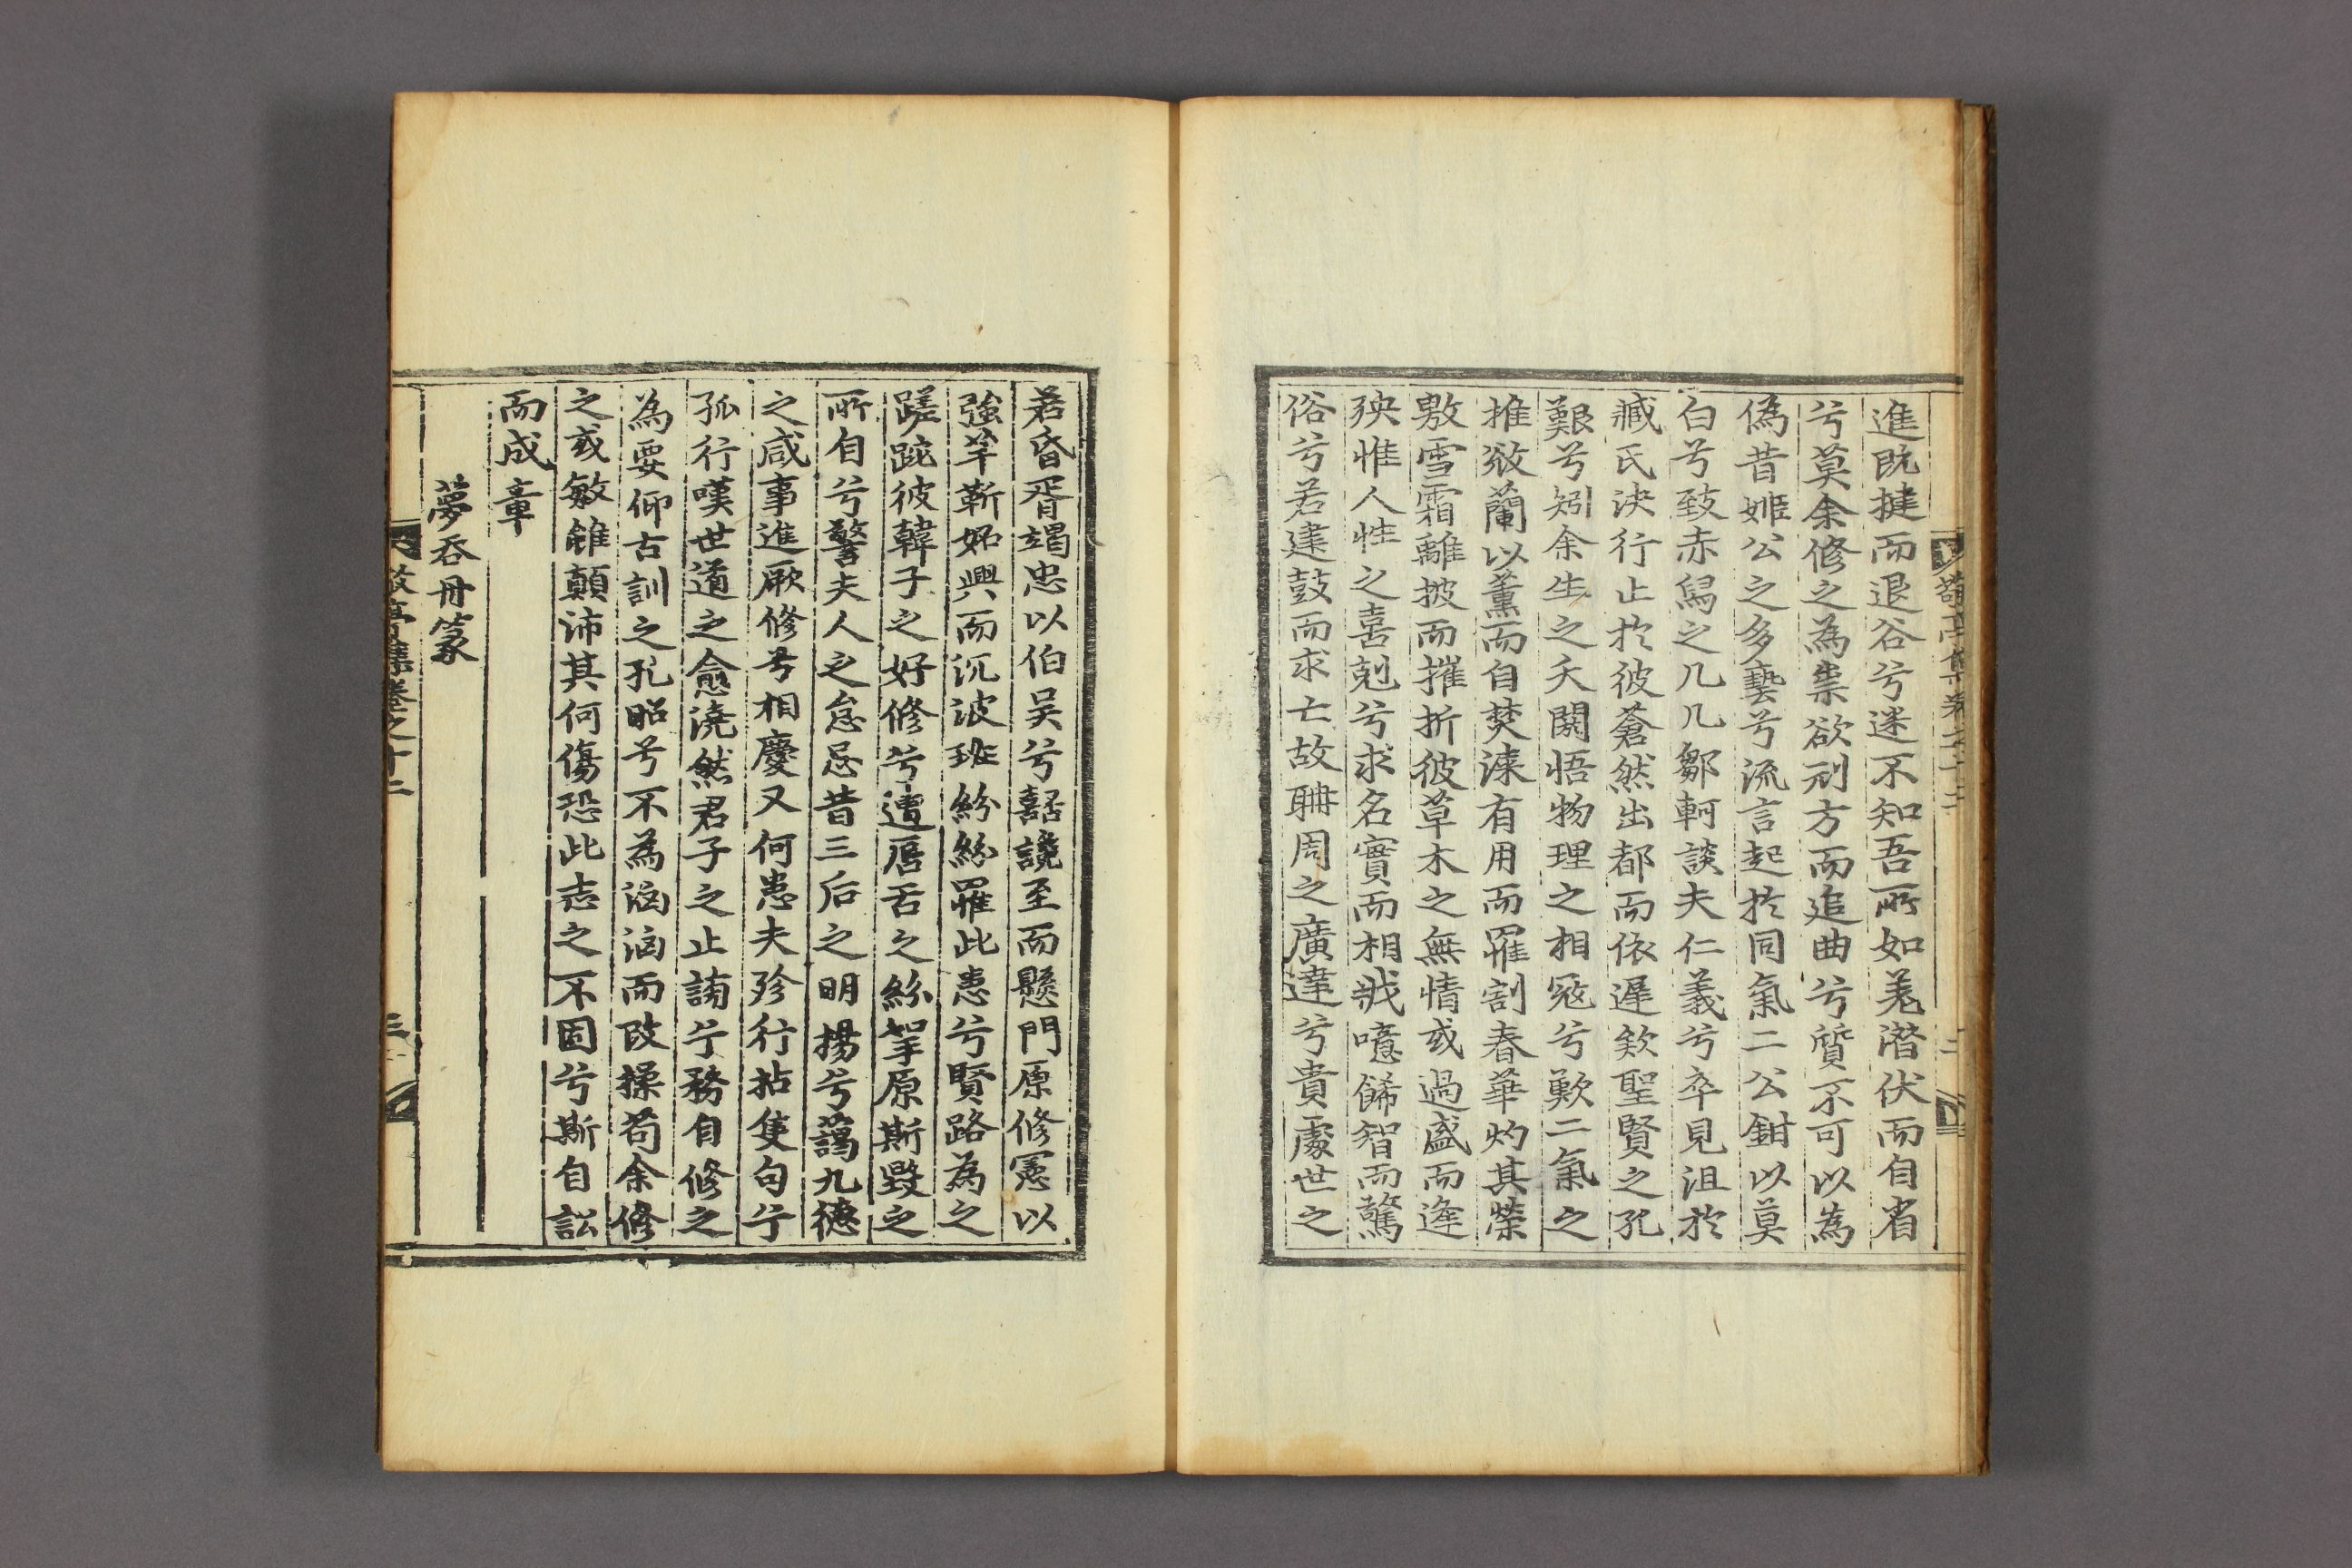 敬亭集卷之十二
二
進旣㨗而退谷兮迷不知吾所如羌潛伏而自省
兮莫余修之爲祟欲刓方而追曲兮質不可以爲
僞昔姬公之多藝兮流言起於同氣二公鉗以莫
白兮致赤舃之几几鄒軻談夫仁義兮卒見沮於
臧氏決行止於彼蒼然出都而依遲欸聖賢之孔
艱兮矧余生之夭閼悟物理之相寇兮歎二氣之
推欻蘭以薰而自焚漆有用而罹割春華灼其榮
敷雪霜離披而摧折彼草木之無情或過盛而逢
殃惟人性之喜剋兮求名實而相戕噫餙智而驚
俗兮若建鼓而求亡故聃周之廣達兮貴處世之
若昏胥竭忠以伯吳兮嚭讒至而懸門原修憲以
強芊靳妬興而沉波班紛紛罹此患兮賢路爲之
蹉跎彼韓子之好修兮遭唇舌之紛挐原斯毀之
所自兮警夫人之怠忌昔三后之明揚兮藹九德
之咸事進厥修兮相慶又何患夫殄行拈隻句兮
孤行嘆世道之愈澆然君子之止謗兮務自修之
爲要仰古訓之孔昭兮不爲汹汹而改操苟余修
之或敏雖顛沛其何傷恐此志之不固兮斯自訟
而成章
夢呑丹篆
敬亭集卷之十二
三